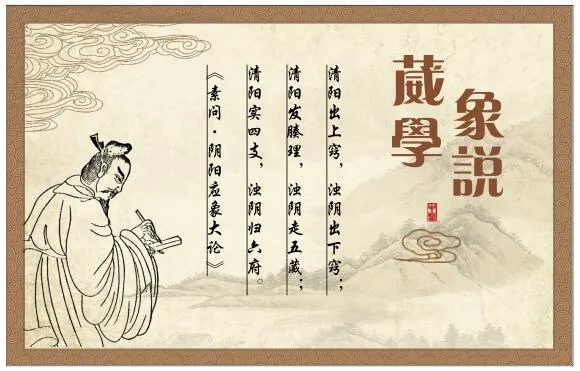 葳學
象説
清阳出上窍，浊阴出下窍；
清阳发腠理，浊阴走五藏；
清阳实四支，浊阴归六府。
《素问·阴阳应象大论》